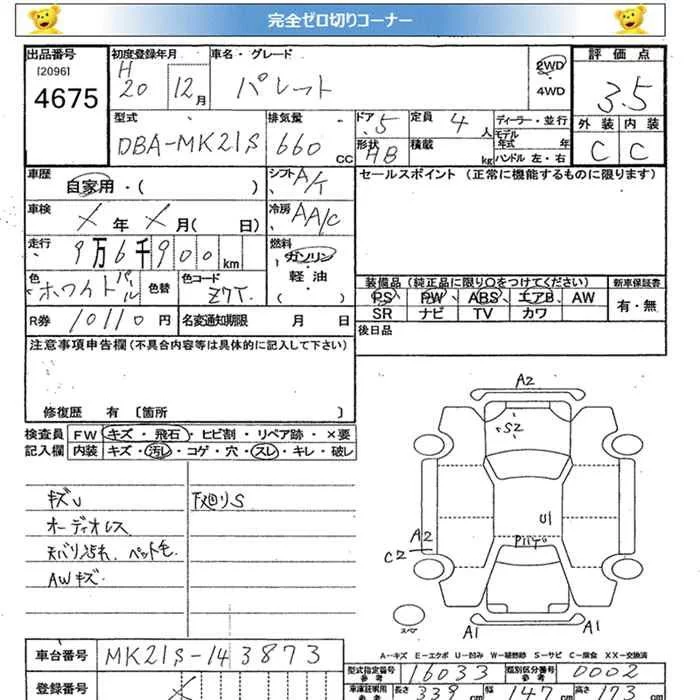 完全ゼロ切りコーナー
出品番号 [2096] 4675
初度登録年月 H20 12月
車名・グレード パレット
2WD
4WD
評価点 3.5
外装 内装
C C
型式 DBA-MK21S
排気量 660 CC
ドア 5
形状 HB
定員 4人
積載 kg
ディーラー・並行
モデル年式 年
ハンドル 左・右
車歴 自家用・( )
シフト A/T
セールスポイント (正常に機能するものに限ります)
車検 X年 X月( 日)
冷房 AA/C
走行 9万6千900km
燃料 ガソリン
軽・油
( )
色 ホワイトパール
色替
色コード Z7T.
装備品(純正品に限り○をつけてください)
新車保証書
PS PW ABS エアB AW
SR ナビ TV カワ
有・無
R券 10110円
名変通知期限 月 日
後日品
注意事項申告欄(不具合内容等は具体的に記入して下さい)
修復歴 有 〔箇所 〕
検査員 FW キズ・飛石・ヒビ割・リペア跡・×要
記入欄 内装 キズ・汚レ・コゲ・穴・スレ・キレ・破レ
キズU
オーディオレス
天バリ汚れ、ペット毛
AWキズ
下廻りS
A2
S2
U1
A2
C2
A1 A1
スペア
A…キズ E…エクボ U…凹み W…補修跡 S…サビ C…腐食 XX…交換済
車台番号 MK21S-143873
型式指定番号 参考 16033
類別区分番号 参考 0002
登録番号
車庫証明用 参考 長さ 339 cm 幅 147 cm 高さ 173 cm